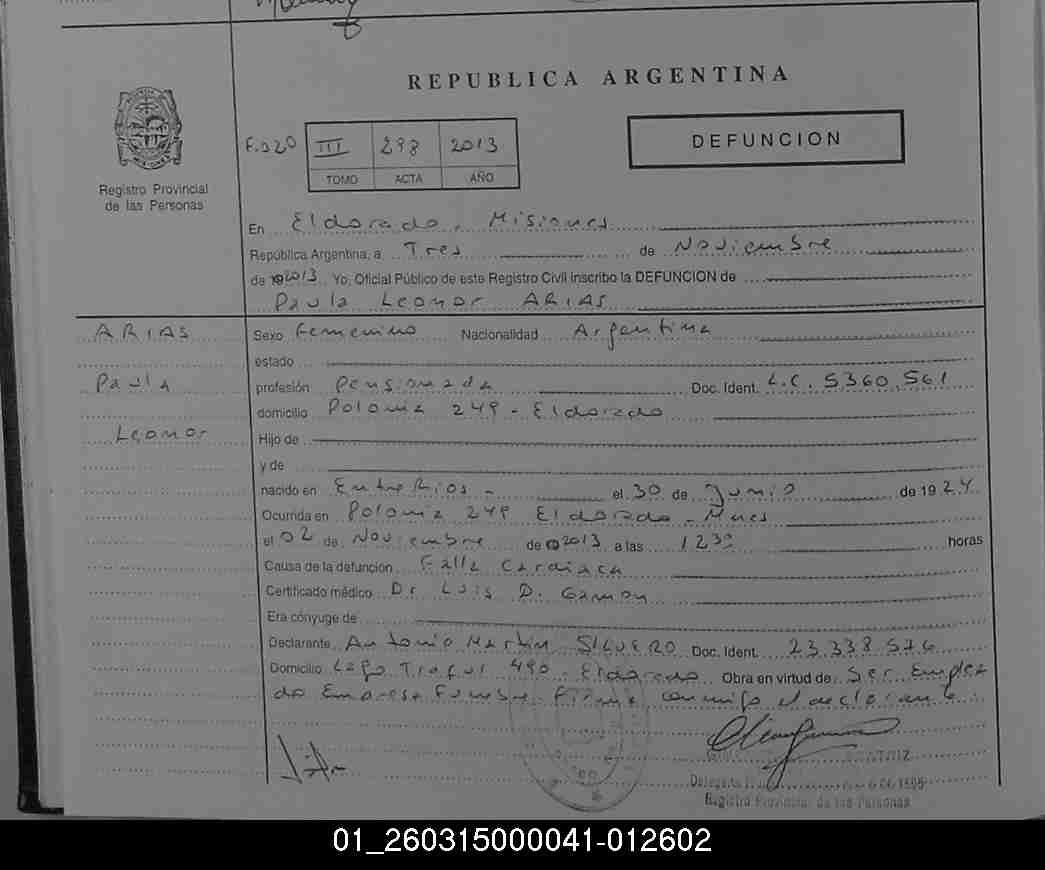 REPUBLICA ARGENTINA
DEFUNCION
F.220 III 298 2013
TOMO ACTA AÑO
Registro Provincial
de las Personas
En Eldorado, Misiones
República Argentina, a Tres de Noviembre
de 2013 Yo, Oficial Público de este Registro Civil inscribo la DEFUNCION de
Paula Leonor ARIAS
ARIAS
Paula
Leonor
Sexo Femenino Nacionalidad Argentina
estado
profesión Pensionada Doc. Ident. L.C. 5360.561
domicilio Polonia 249 - Eldorado
Hijo de
y de
nacido en Entre Rios - el 30 de Junio de 1924
Ocurrida en Polonia 249 Eldorado - Mnes
el 02 de Noviembre de 2013 a las 1230 horas
Causa de la defuncion Falla Cardiaca
Certificado médico Dr Luis D.
Era cónyuge de
Declarante Antonio Martin SILVERO Doc. Ident. 23.338.576
Domicilio Lago Traful 490 - Eldorado Obra en virtud de Ser Emplea
do Empresa Funebre Firma conmigo el declarante
Registro Provincial de las Personas
01_260315000041-012602